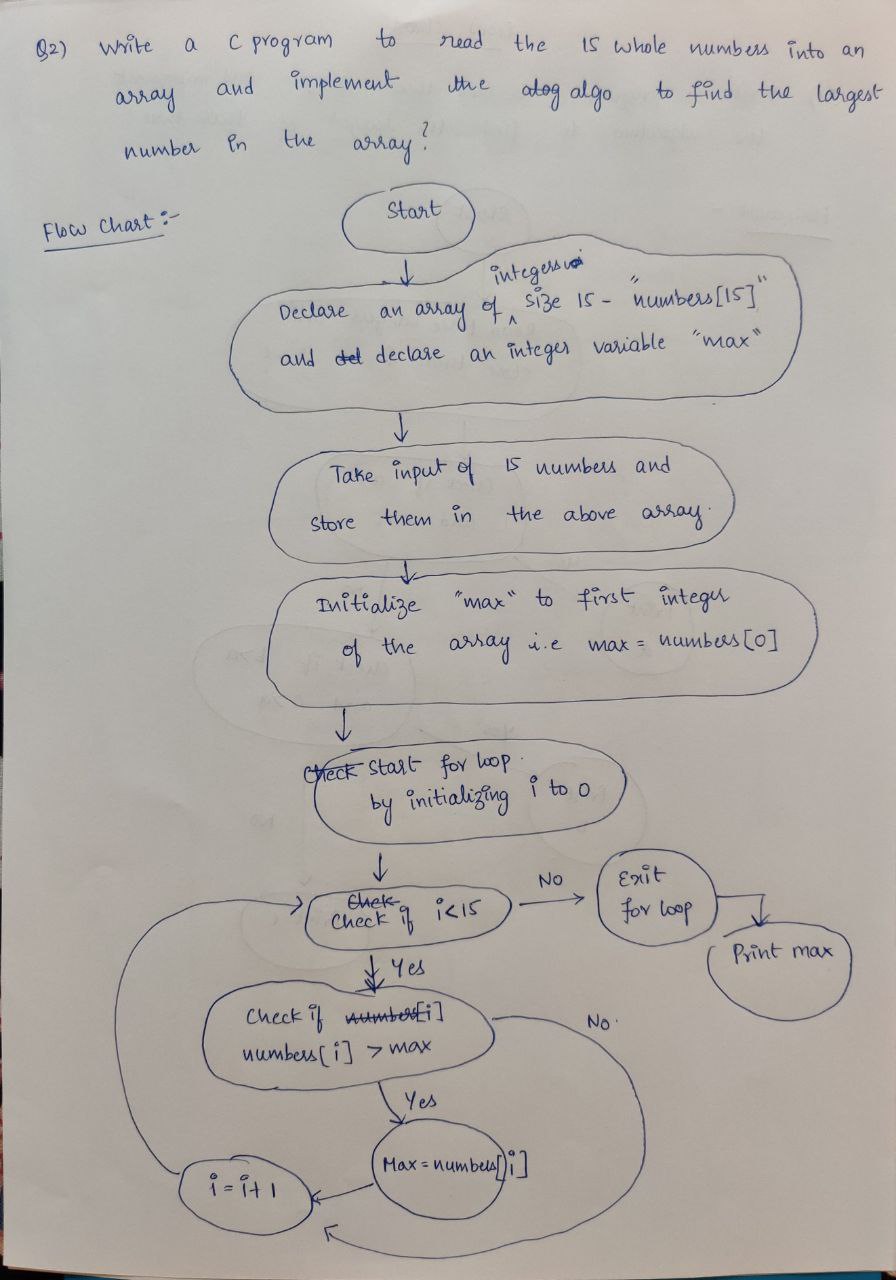 Q2) Write a C program to read the 15 whole numbers into an
array and implement the algo to find the largest
number in the array?
Flow Chart :-
Start
integers
Declare an array of ^ size 15 - "numbers[15]"
and declare an integer variable "max"
Take input of 15 numbers and
store them in the above array.
Initialize "max" to first integer
of the array i.e max = numbers[0]
Check Start for loop.
by initializing i to 0
Chek
Check if i<15
No
Exit
for loop
Print max
Yes
Check if number[i]
numbers[i] > max
No.
Yes
Max = numbers[i]
i = i+1